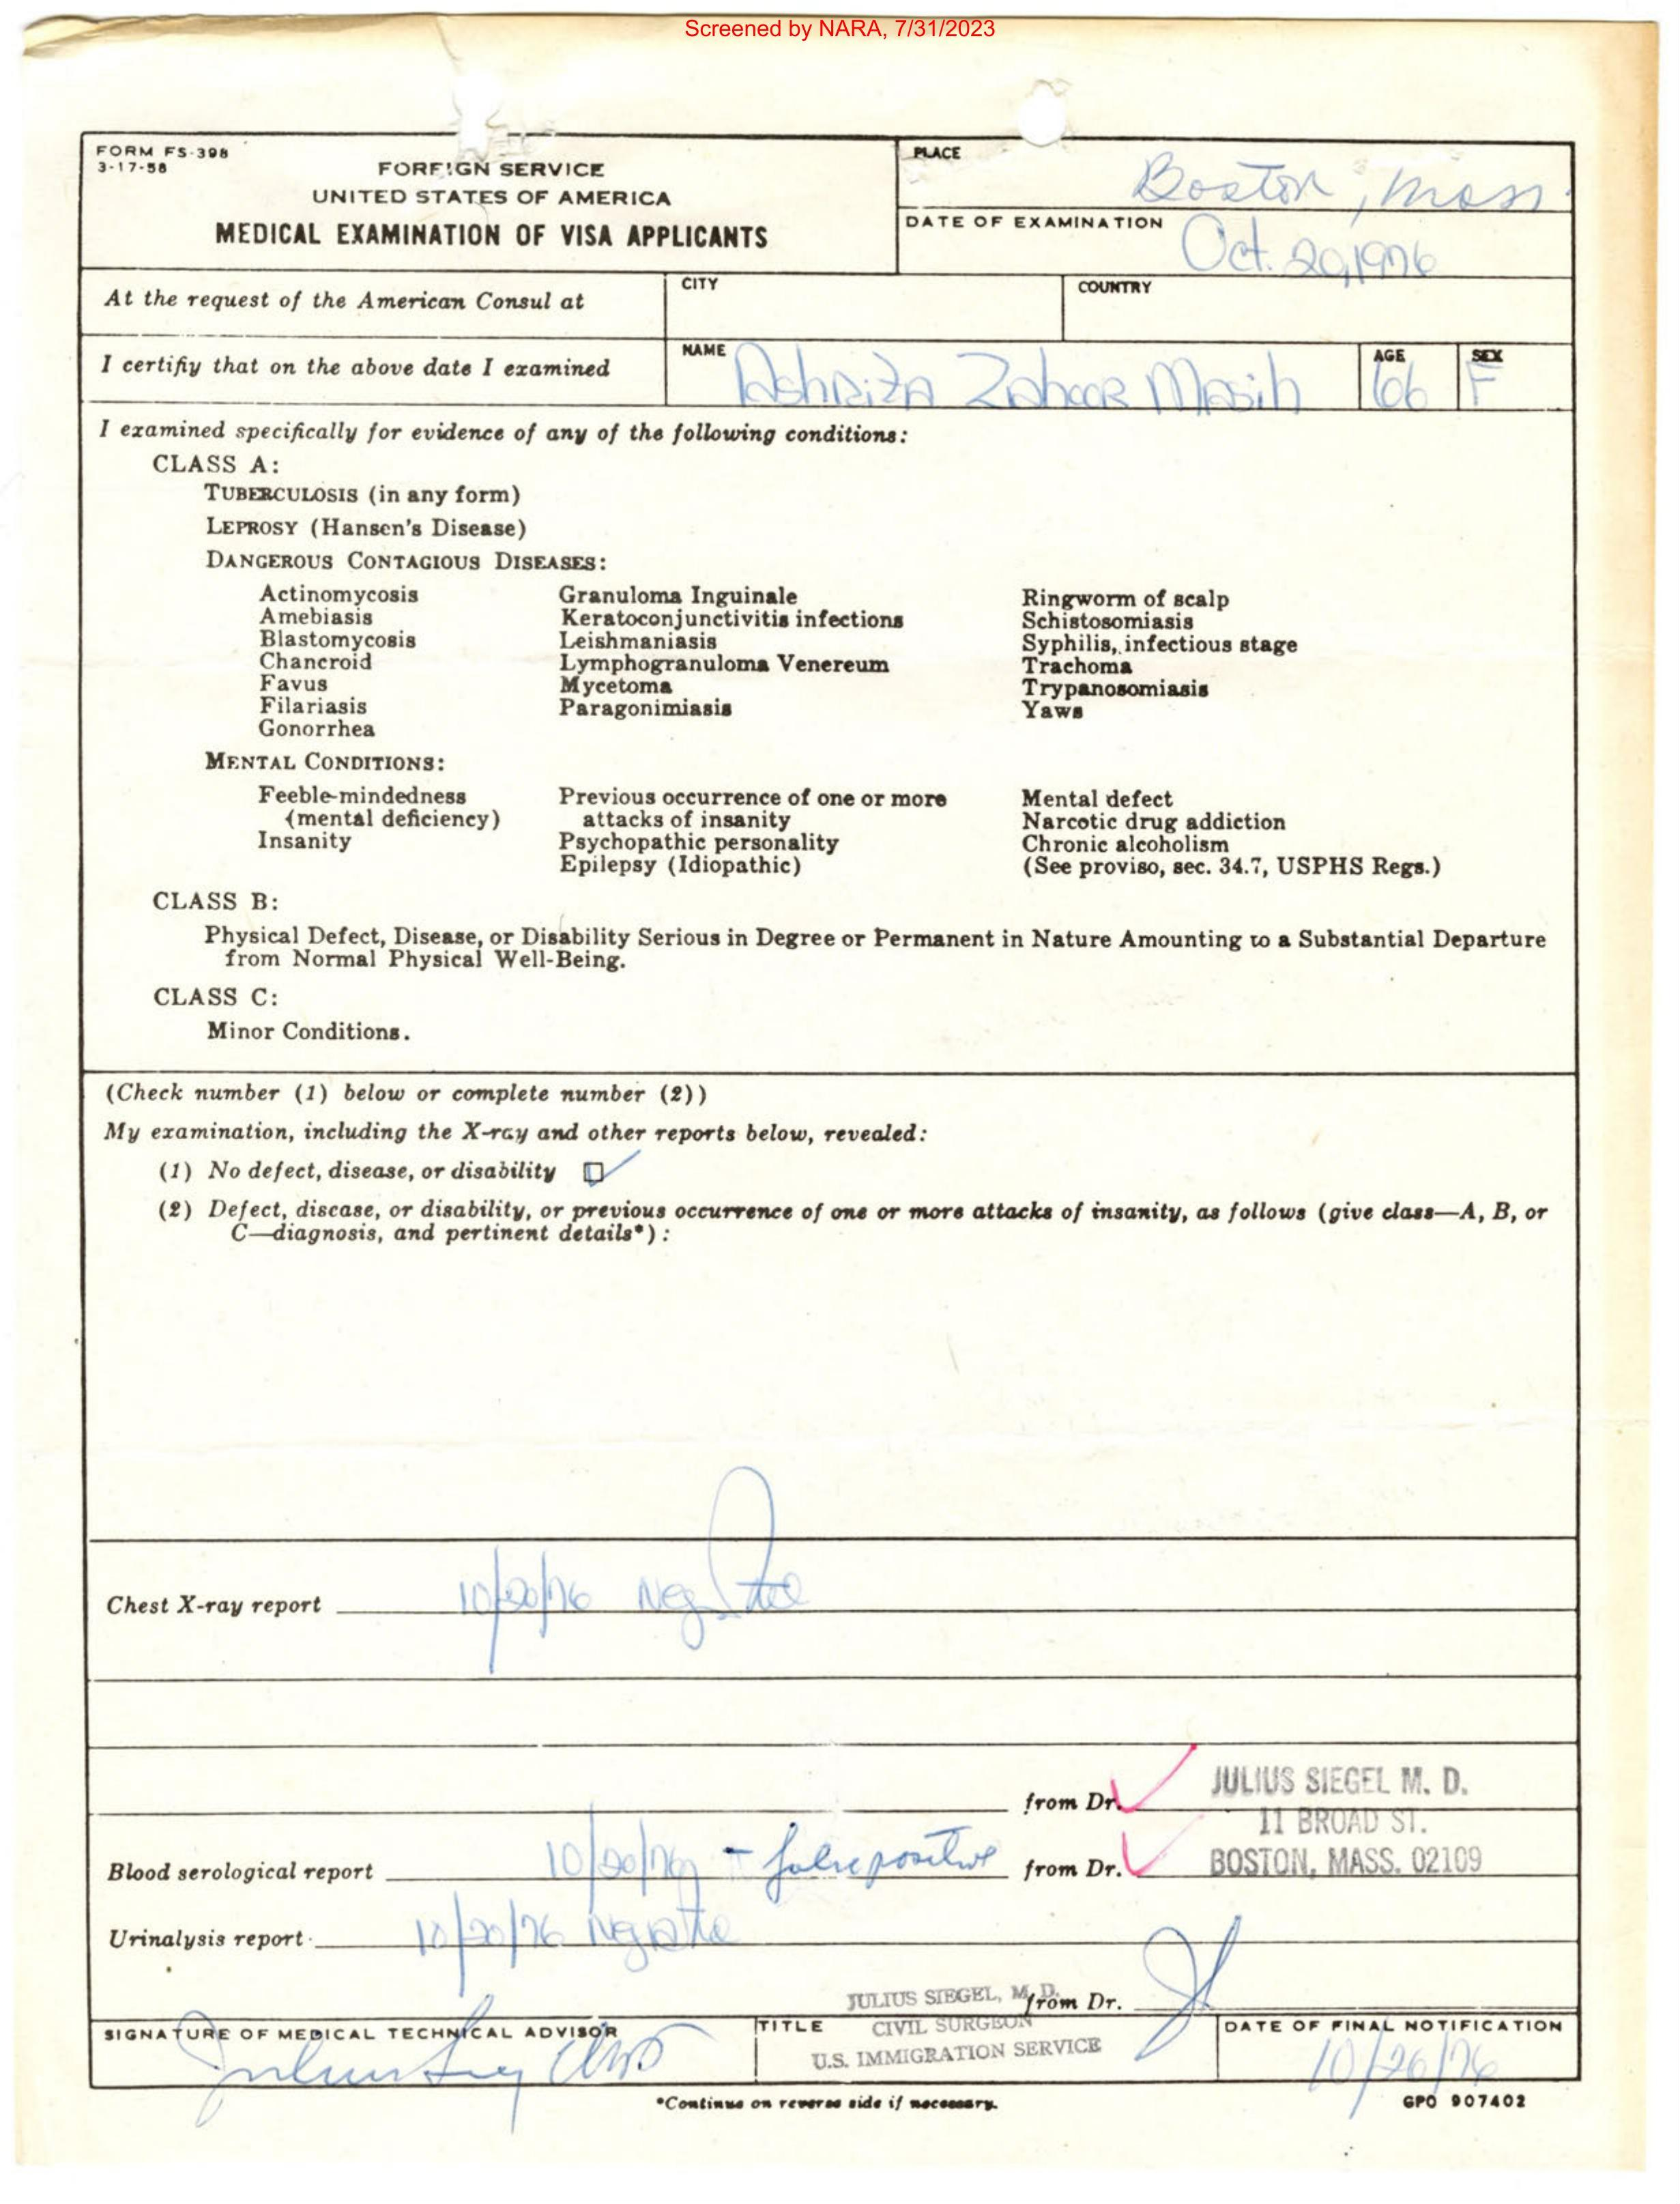 Screened by NARA, 7/31/2023
FORM FS-398
3-17-58
FOREIGN SERVICE
UNITED STATES OF AMERICA
MEDICAL EXAMINATION OF VISA APPLICANTS
PLACE
Boston, Mass.
DATE OF EXAMINATION
Oct. 20, 1976
At the request of the American Consul at
CITY
COUNTRY
I certify that on the above date I examined
NAME
Zahoor Masih
AGE
66
SEX
F
I examined specifically for evidence of any of the following conditions:
CLASS A:
TUBERCULOSIS (in any form)
LEPROSY (Hansen's Disease)
DANGEROUS CONTAGIOUS DISEASES:
Actinomycosis
Amebiasis
Blastomycosis
Chancroid
Favus
Filariasis
Gonorrhea
Granuloma Inguinale
Keratoconjunctivitis infections
Leishmaniasis
Lymphogranuloma Venereum
Mycetoma
Paragonimiasis
Ringworm of scalp
Schistosomiasis
Syphilis, infectious stage
Trachoma
Trypanosomiasis
Yaws
MENTAL CONDITIONS:
Feeble-mindedness
(mental deficiency)
Insanity
Previous occurrence of one or more
attacks of insanity
Psychopathic personality
Epilepsy (Idiopathic)
Mental defect
Narcotic drug addiction
Chronic alcoholism
(See proviso, sec. 34.7, USPHS Regs.)
CLASS B:
Physical Defect, Disease, or Disability Serious in Degree or Permanent in Nature Amounting to a Substantial Departure
from Normal Physical Well-Being.
CLASS C:
Minor Conditions.
(Check number (1) below or complete number (2))
My examination, including the X-ray and other reports below, revealed:
(1) No defect, disease, or disability
(2) Defect, disease, or disability, or previous occurrence of one or more attacks of insanity, as follows (give class—A, B, or
C—diagnosis, and pertinent details*):
Chest X-ray report 10/20/76 Negative
from Dr. JULIUS SIEGEL M. D.
11 BROAD ST.
Blood serological report 10/20/76 - false positive from Dr. BOSTON, MASS. 02109
Urinalysis report 10/20/76 Negative
JULIUS SIEGEL, M. D. from Dr.
SIGNATURE OF MEDICAL TECHNICAL ADVISOR
TITLE
CIVIL SURGEON
U.S. IMMIGRATION SERVICE
DATE OF FINAL NOTIFICATION
10/26/76
*Continue on reverse side if necessary.
GPO 907402